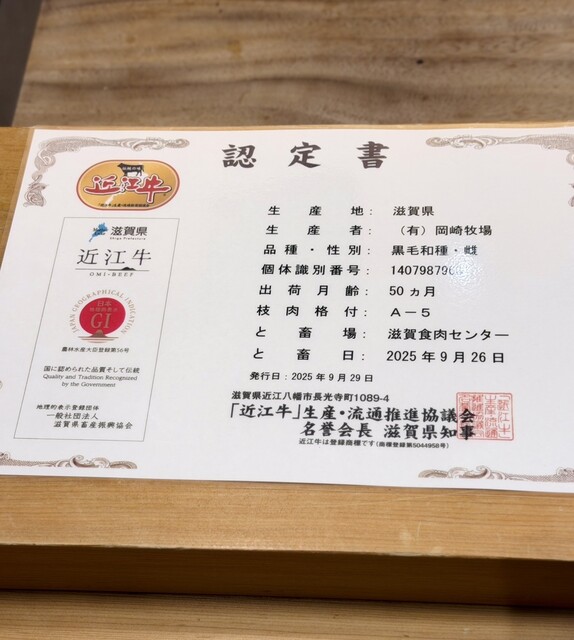 認定書
近江牛
滋賀県
Shiga Prefecture
近江牛
OMI-BEEF
JAPAN GEOGRAPHICAL INDICATION
日本
GI
農林水産大臣登録第56号
国に認められた品質そして伝統
Quality and Tradition Recognized
by the Government
地理的表示登録団体
一般社団法人
滋賀県畜産振興協会
生産地： 滋賀県
生産者： （有）岡崎牧場
品種・性別： 黒毛和種・雌
個体識別番号： 14079879
出荷月齢： 50ヵ月
枝肉格付： A－5
と畜場： 滋賀食肉センター
と畜日： 2025年9月26日
発行日：2025年9月29日
滋賀県近江八幡市長光寺町1089-4
「近江牛」生産・流通推進協議会
名誉会長 滋賀県知事
近江牛は登録商標です（商標登録第5044958号）